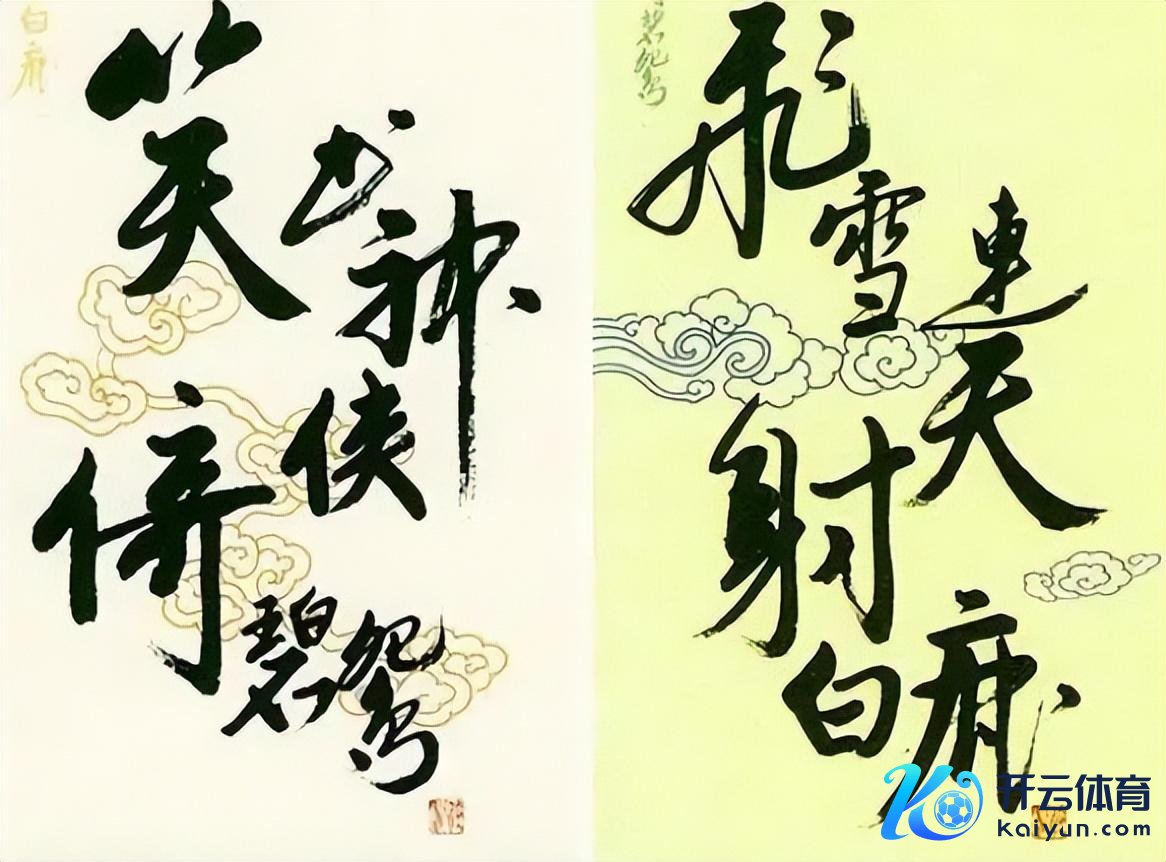 白鹿
笑书神侠倚碧鸳
碧鸳
飛雪連天射白鹿
开云体育
kaiyun.com